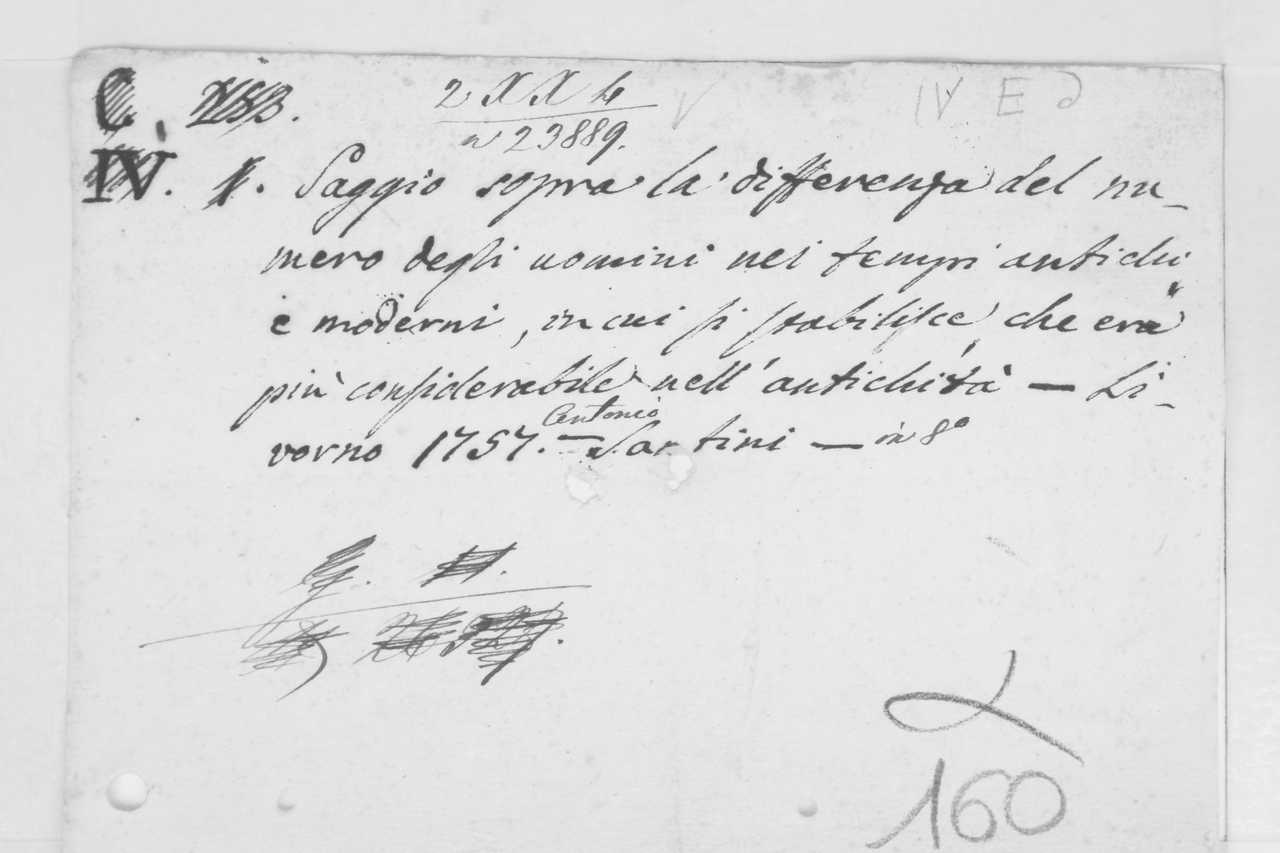 2 X X h
IV E d
C.
n 23889.
IV. 1. Saggio sopra la differenza del nu-
mero degli uomini nei tempi antichi
e moderni, in cui si stabilisce, che era
più considerabile nell'antichità — Li-
vorno 1757. — Antonio Santini — in 8º
160